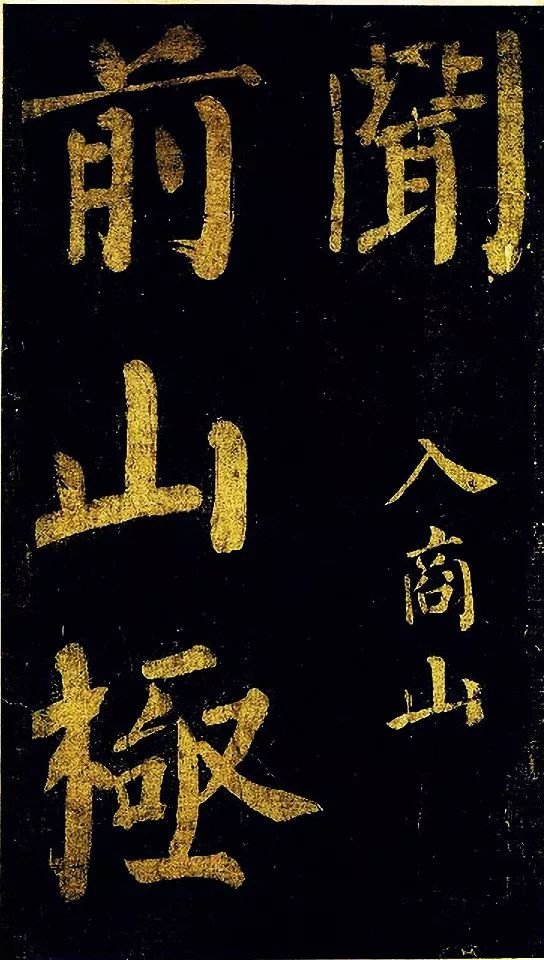 聞入商山
前山極